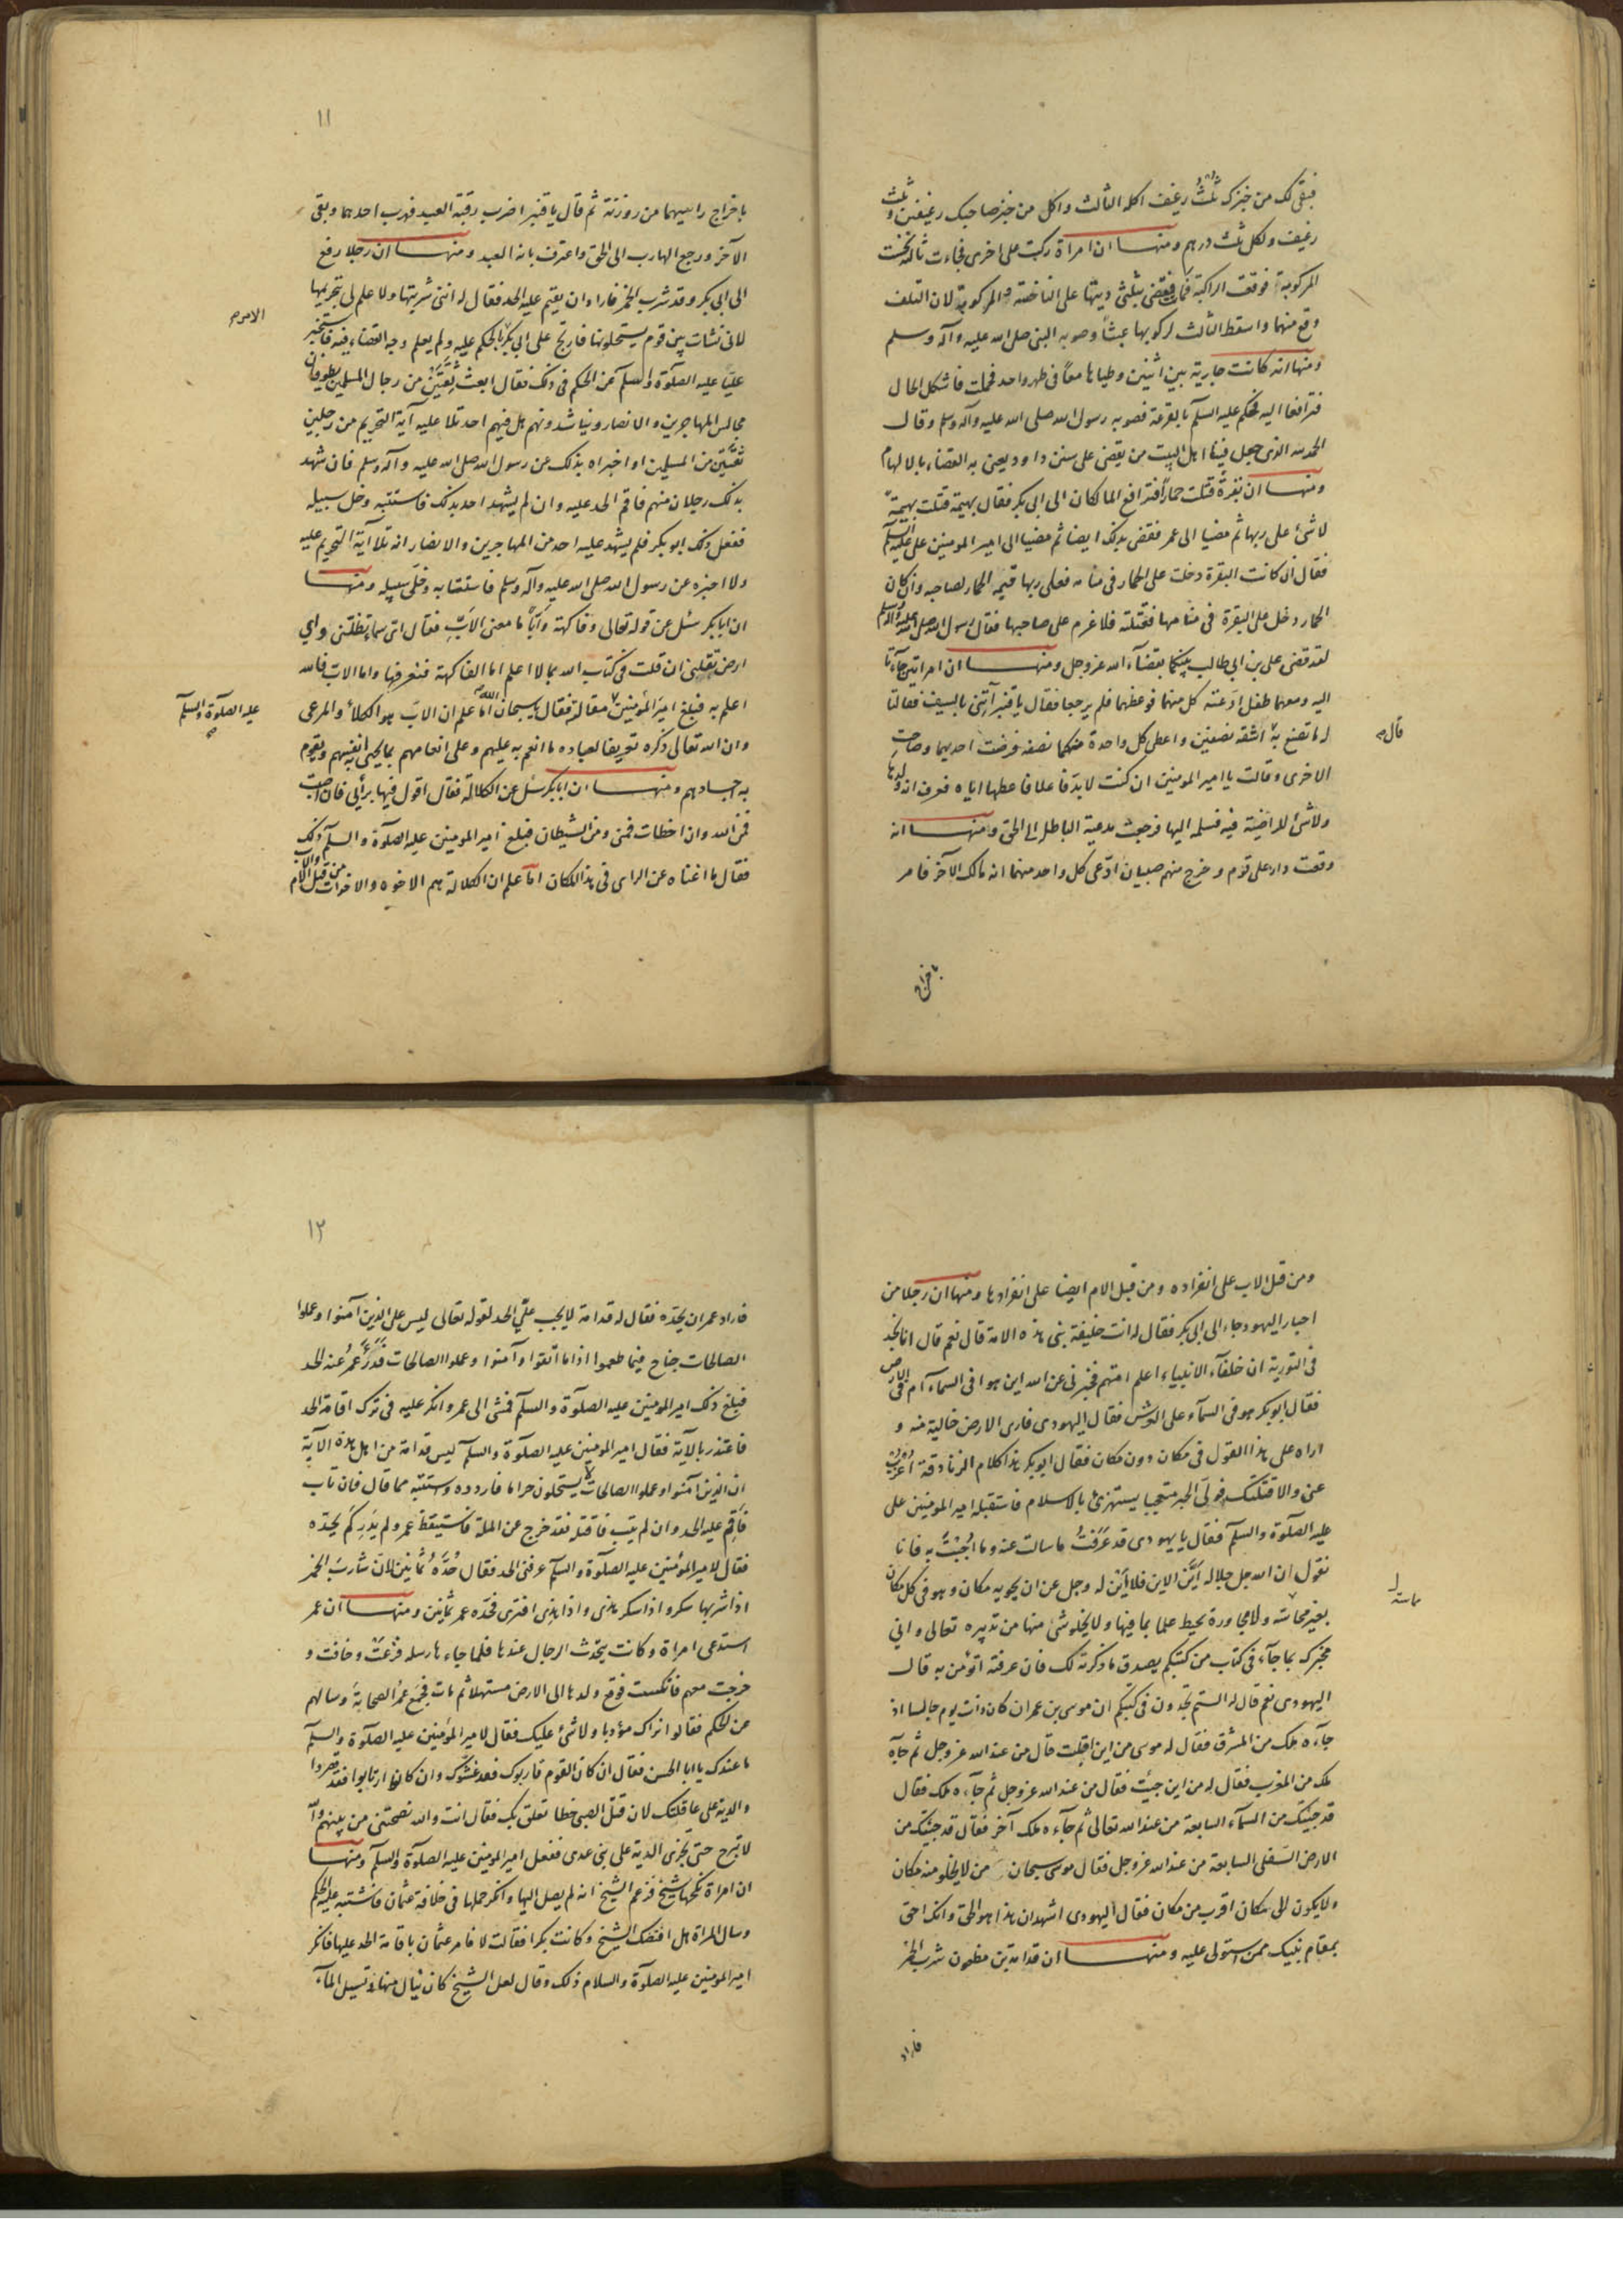 فبقى لك من خبزك ثلث رغيف اكله الثالث واكل من خبز صاحبك رغيفين وثلث
رغيف ولكل ثلث درهم ومنها ان امراة ركبت على اخرى فجاءت ثالثة فنخست
المركوبة فوقعت الراكبة فماتت فقضى بثلثى ديتها على الناخسة والمركوبة لان التلف
وقع منهما واسقط الثالث لركوبها عبثاً وصوبه النبى صلى الله عليه وآله وسلم
ومنها انه كانت جارية بين اثنين وطياها معاً فى طهر واحد فحملت فاشكل الحال
فترافعا اليه فحكم عليه السلم بالقرعة فصوبه رسول الله صلى الله عليه وآله وسلم وقال
الحمد لله الذى جعل فينا اهل البيت من يقضى على سنن داود يعنى به القضاء بالالهام
ومنها ان بقرة قتلت حماراً فترافع المالكان الى ابى بكر فقال بهيمة قتلت بهيمة
لا شئ على ربها ثم مضيا الى عمر فقضى بذلك ايضا ثم مضيا الى امير المومنين على عليه السلم
فقال ان كانت البقرة دخلت على الحمار فى منامه فعلى ربها قيمة الحمار لصاحبه وان كان
الحمار دخل على البقرة فى منامها فقتلته فلا غرم على صاحبها فقال رسول الله صلى الله عليه وآله وسلم
لقد قضى على بن ابى طالب بينكما بقضآء الله عز وجل ومنها ان امراتين جآءتا
اليه ومعهما طفل ادعته كل منهما فوعظهما فلم يرجعا فقال يا قنبر آتنى بالسيف فقالتا
له ما تصنع به اشقه نصفين واعطى كل واحدة منكما نصفه فرضت احديهما وصاحت
قال
الاخرى وقالت يا امير المومنين ان كنت لا بد فاعلا فاعطها اياه فعرف انه ولدها
ولا شئ للراضية فيه فسلمه اليها فرجعت مدعية الباطل الى الحق ومنها انه
وقعت دار على قوم وخرج منهم صبيان ادعى كل واحد منهما انه مالك الآخر فامر
باخراج
١١
باخراج راسيهما من روزنة ثم قال يا قنبر اضرب رقبة العبد فهرب احدهما وبقى
الآخر ورجع الهارب الى الحق واعترف بانه العبد ومنها ان رجلا رفع
الى ابى بكر وقد شرب الخمر فاراد ان يقيم عليه الحد فقال له اننى شربتها ولا علم لى بتحريمها
لانى نشات بين قوم يستحلونها فارتج على ابى بكر بالحكم عليه ولم يعلم وجه القضاء فيه فاستخبر
عليّا عليه الصلوة والسلم عن الحكم فى ذلك فقال ابعث ثقتين من رجال المسلمين يطوفان
مجالس المهاجرين والانصار ويناشدونهم هل فيهم احد تلا عليه آية التحريم من رجلين
ثقتين من المسلمين او اخبراه بذلك عن رسول الله صلى الله عليه وآله وسلم فان شهد
بذلك رجلان منهم فاقم الحد عليه وان لم يشهد احد بذلك فاستتبه وخل سبيله
ففعل ذلك ابو بكر فلم يشهد عليه احد من المهاجرين والانصار انه تلا آية التحريم عليه
ولا اخبره عن رسول الله صلى الله عليه وآله وسلم فاستتابه وخلى سبيله ومنها
ان ابا بكر سئل عن قوله تعالى وفاكهة وأبّاً ما معنى الأبّ فقال اى سماء تظلنى واى
ارض تقلنى ان قلت فى كتاب الله بما لا اعلم اما الفاكهة فنعرفها واما الاب فالله
اعلم به فبلغ امير المؤمنين مقالة فقال يا سبحان الله اما علم ان الابّ هو الكلأ والمرعى
عليه الصلوة والسلم
وان الله تعالى ذكره تعريفا لعباده ما انعم به عليهم وعلى انعامهم بما يحيى انفسهم ويقوم
به اجسادهم ومنها ان ابا بكر سئل عن الكلالة فقال اقول فيها برأيى فان اصبت
فمن الله وان اخطات فمنى ومن الشيطان فبلغ امير المومنين عليه الصلوة والسلم ذلك
فقال ما اغناه عن الراى فى هذا المكان اما علم ان الكلالة هم الاخوة والاخوات من قبل الاب والام
ومن قبل الاب على انفراده ومن قبل الام ايضا على انفرادها ومنها ان رجلا من
احبار اليهود جاء الى ابى بكر فقال له انت خليفة نبى هذه الامة قال نعم قال انا نجد
فى التورية ان خلفآء الانبياء اعلم اممهم فخبرنى عن الله اين هو افى السمآء ام فى الارض
فقال ابو بكر هو فى السمآء على العرش فقال اليهودى فارى الارض خالية منه و
اراه على هذا القول فى مكان دون مكان فقال ابو بكر هذا كلام الزنادقة اعزب
عنى والا قتلتك فولى الحبر متعجبا يستهزئ بالاسلام فاستقبله امير المومنين على
عليه الصلوة والسلم فقال يا يهودى قد عرفت ما سالت عنه وما اجبت به فانا
نقول ان الله جل جلاله أيّن الاين فلا أين له وجل عن ان يحويه مكان وهو فى كل مكان
بغير مماسة ولا مجاورة يحيط علما بما فيها ولا يخلو شئ منها من تدبيره تعالى وانى
مخبرك بما جآء فى كتاب من كتبكم يصدق ما ذكرته لك فان عرفته اتؤمن به قال
اليهودى نعم قال له الستم تجدون فى كتبكم ان موسى بن عمران كان ذات يوم جالسا اذ
جآءه ملك من المشرق فقال له موسى من اين اقبلت قال من عند الله عز وجل ثم جآءه
ملك من المغرب فقال له من اين جيئت فقال من عند الله عز وجل ثم جآءه ملك فقال
قد جيئتك من السمآء السابعة من عند الله تعالى ثم جآءه ملك آخر فقال قد جيئتك من
الارض السفلى السابعة من عند الله عز وجل فقال موسى سبحان من لا يخلو منه مكان
ولا يكون الى مكان اقرب من مكان فقال اليهودى اشهد ان هذا هو الحق وانك احق
بمقام نبيك ممن استولى عليه ومنها ان قدامة بن مظعون شرب الخمر
فاراد
١٢
فاراد عمر ان يحدّه فقال له قدامة لا يجب علىّ الحد لقوله تعالى ليس على الذين آمنوا وعملوا
الصالحات جناح فيما طعموا اذا ما اتقوا وآمنوا وعملوا الصالحات فدرأ عمر عنه الحد
فبلغ ذلك امير المومنين عليه الصلوة والسلم فمشى الى عمر وانكر عليه فى ترك اقامة الحد
فاعتذر بالآية فقال امير المومنين عليه الصلوة والسلم ليس قدامة من اهل هذه الآية
ان الذين آمنوا وعملوا الصالحات لا يستحلون حراما فاردده واستتبه مما قال فان تاب
فأقم عليه الحد وان لم يتب فاقتله فقد خرج عن الملة فاستيقظ عمر ولم يدر كم يحدّه
فقال لامير المؤمنين عليه الصلوة والسلم عرفنى الحد فقال حدّه ثمانين لان شارب الخمر
اذا شربها سكر واذا سكر هذى واذا هذى افترى فحده عمر ثمانين ومنها ان عمر
استدعى امراة وكانت يتحدث الرجال عندها فلما جاءها رسله فزعت وخافت و
خرجت معهم فانكست فوقع ولدها الى الارض مستهلا ثم مات فجمع عمر الصحابة وسالهم
عن الحكم فقالوا نراك مؤدبا ولا شئ عليك فقال لامير المؤمنين عليه الصلوة والسلم
ما عندك يا ابا الحسن فقال ان كان القوم قاربوك فقد غشوك وان كانوا ارتابوا فقد قصروا
والدية على عاقلتك لان قتل الصبى خطا تعلق بك فقال انت والله نصحتنى من بينهم والله
لا تبرح حتى تجزى الدية على بنى عدى ففعل امير المومنين عليه الصلوة والسلم ومنها
ان امراة نكحها شيخ فزعم الشيخ انه لم يصل اليها وانكر حملها فى خلافة عثمان فاشتبه عليه الحكم
وسال المراة هل افتضك الشيخ وكانت بكرا فقالت لا فامر عثمان باقامة الحد عليها فانكر
امير المومنين عليه الصلوة والسلام ذلك وقال لعل الشيخ كان ينال منها وتسيل المآء